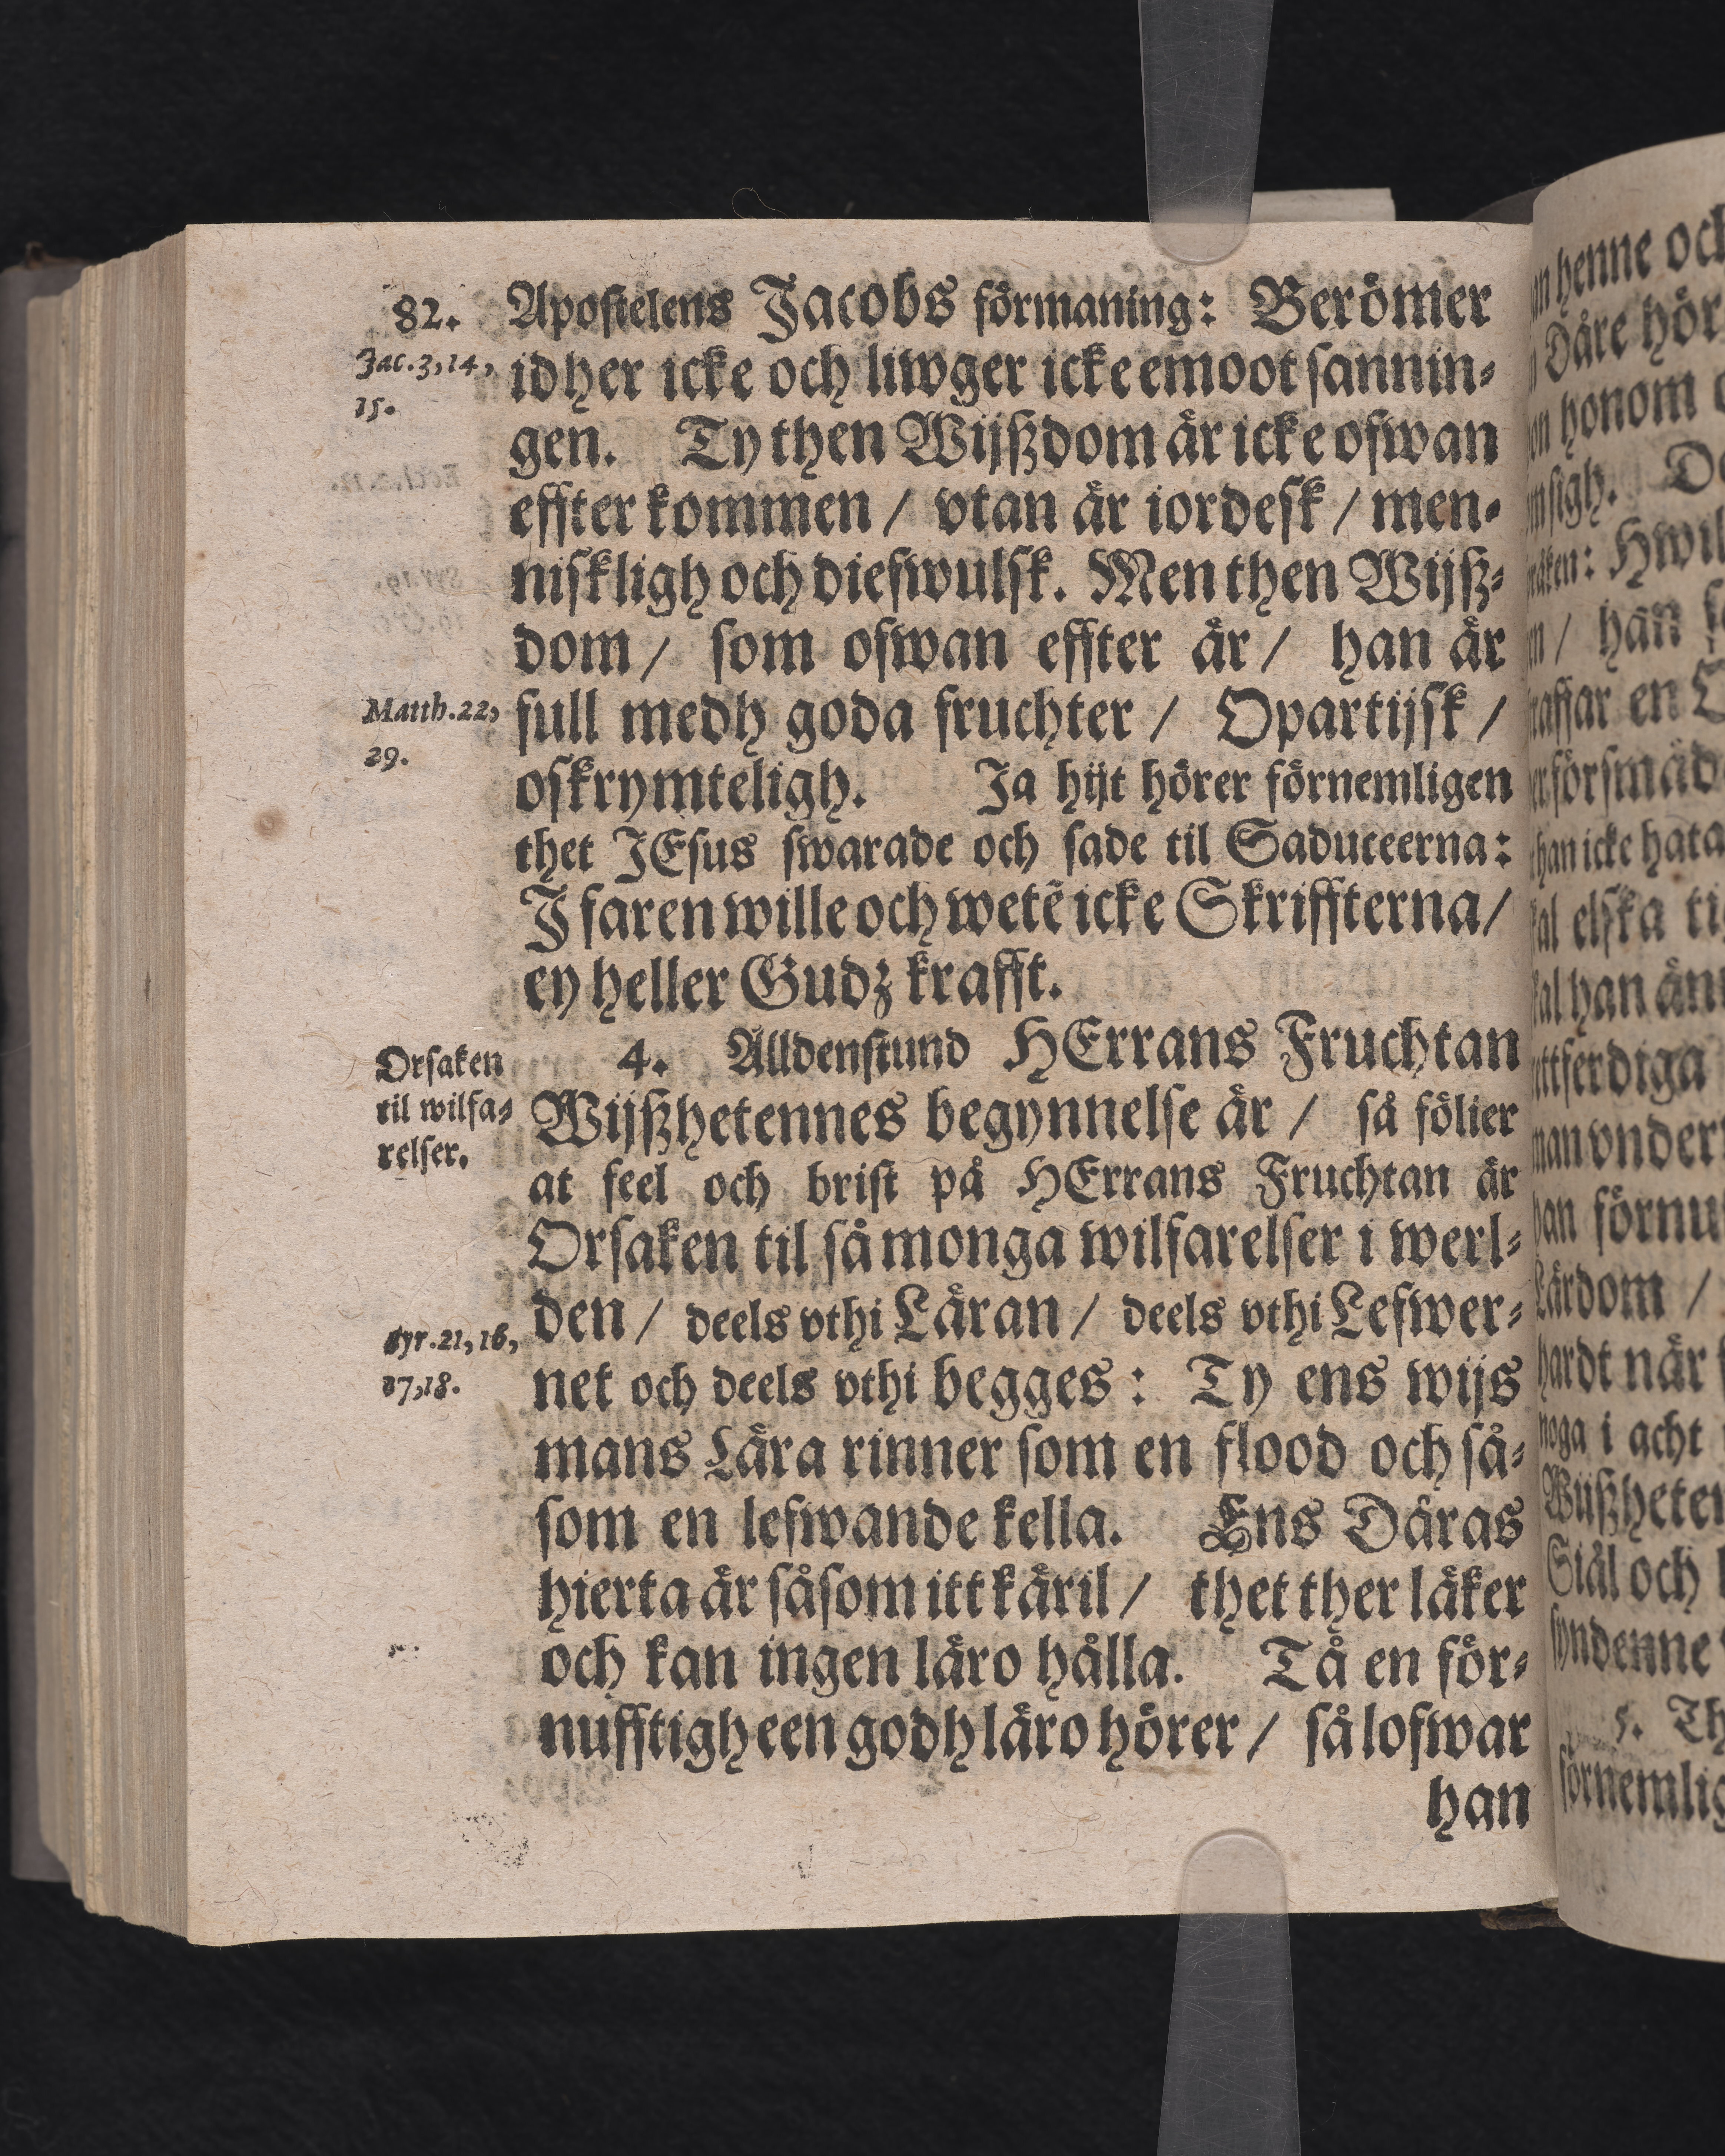 82.
Apostelens Jacobs förmaning: Berömer
Jac. 3, 14,
15.
idher icke och liwger icke emoot sannin-
gen. Ty then Wijßdom är icke ofwan
effter kommen / vtan är iordesk / men-
niskligh och diefwulsk. Men then Wijß-
dom / som ofwan effter är / han är
Matth. 22,
29.
full medh goda fruchter / Opartijsk /
oskrymteligh. Ja hijt hörer förnemligen
thet JEsus swarade och sade til Saduceerna:
J faren wille och wetē icke Skriffterna /
ey heller Gudz krafft.
Orsaken
til wilfa-
relser.
4. Alldenstund HErrans Fruchtan
Wijßhetennes begynnelse är / så fölier
at feel och brist på HErrans Fruchtan är
Orsaken til så monga wilfarelser i werl-
den / deels vthi Läran / deels vthi Lefwer-
Syr. 21, 16,
17, 18.
net och deels vthi begges: Ty ens wijs
mans Lära rinner som en flood och så-
som en lefwande kella. Ens Dåras
hierta är såsom itt käril / thet ther läker
och kan ingen läro hålla. Tå en för-
nufftigh een godh läro hörer / så lofwar
han
henne och
Dåre hör
honom
sigh.
Hwil
/ han
en
försmäd
han icke hata
elska
han
vnder
förnu
/
när
i acht
Siäl och
5. Th
förnemlig